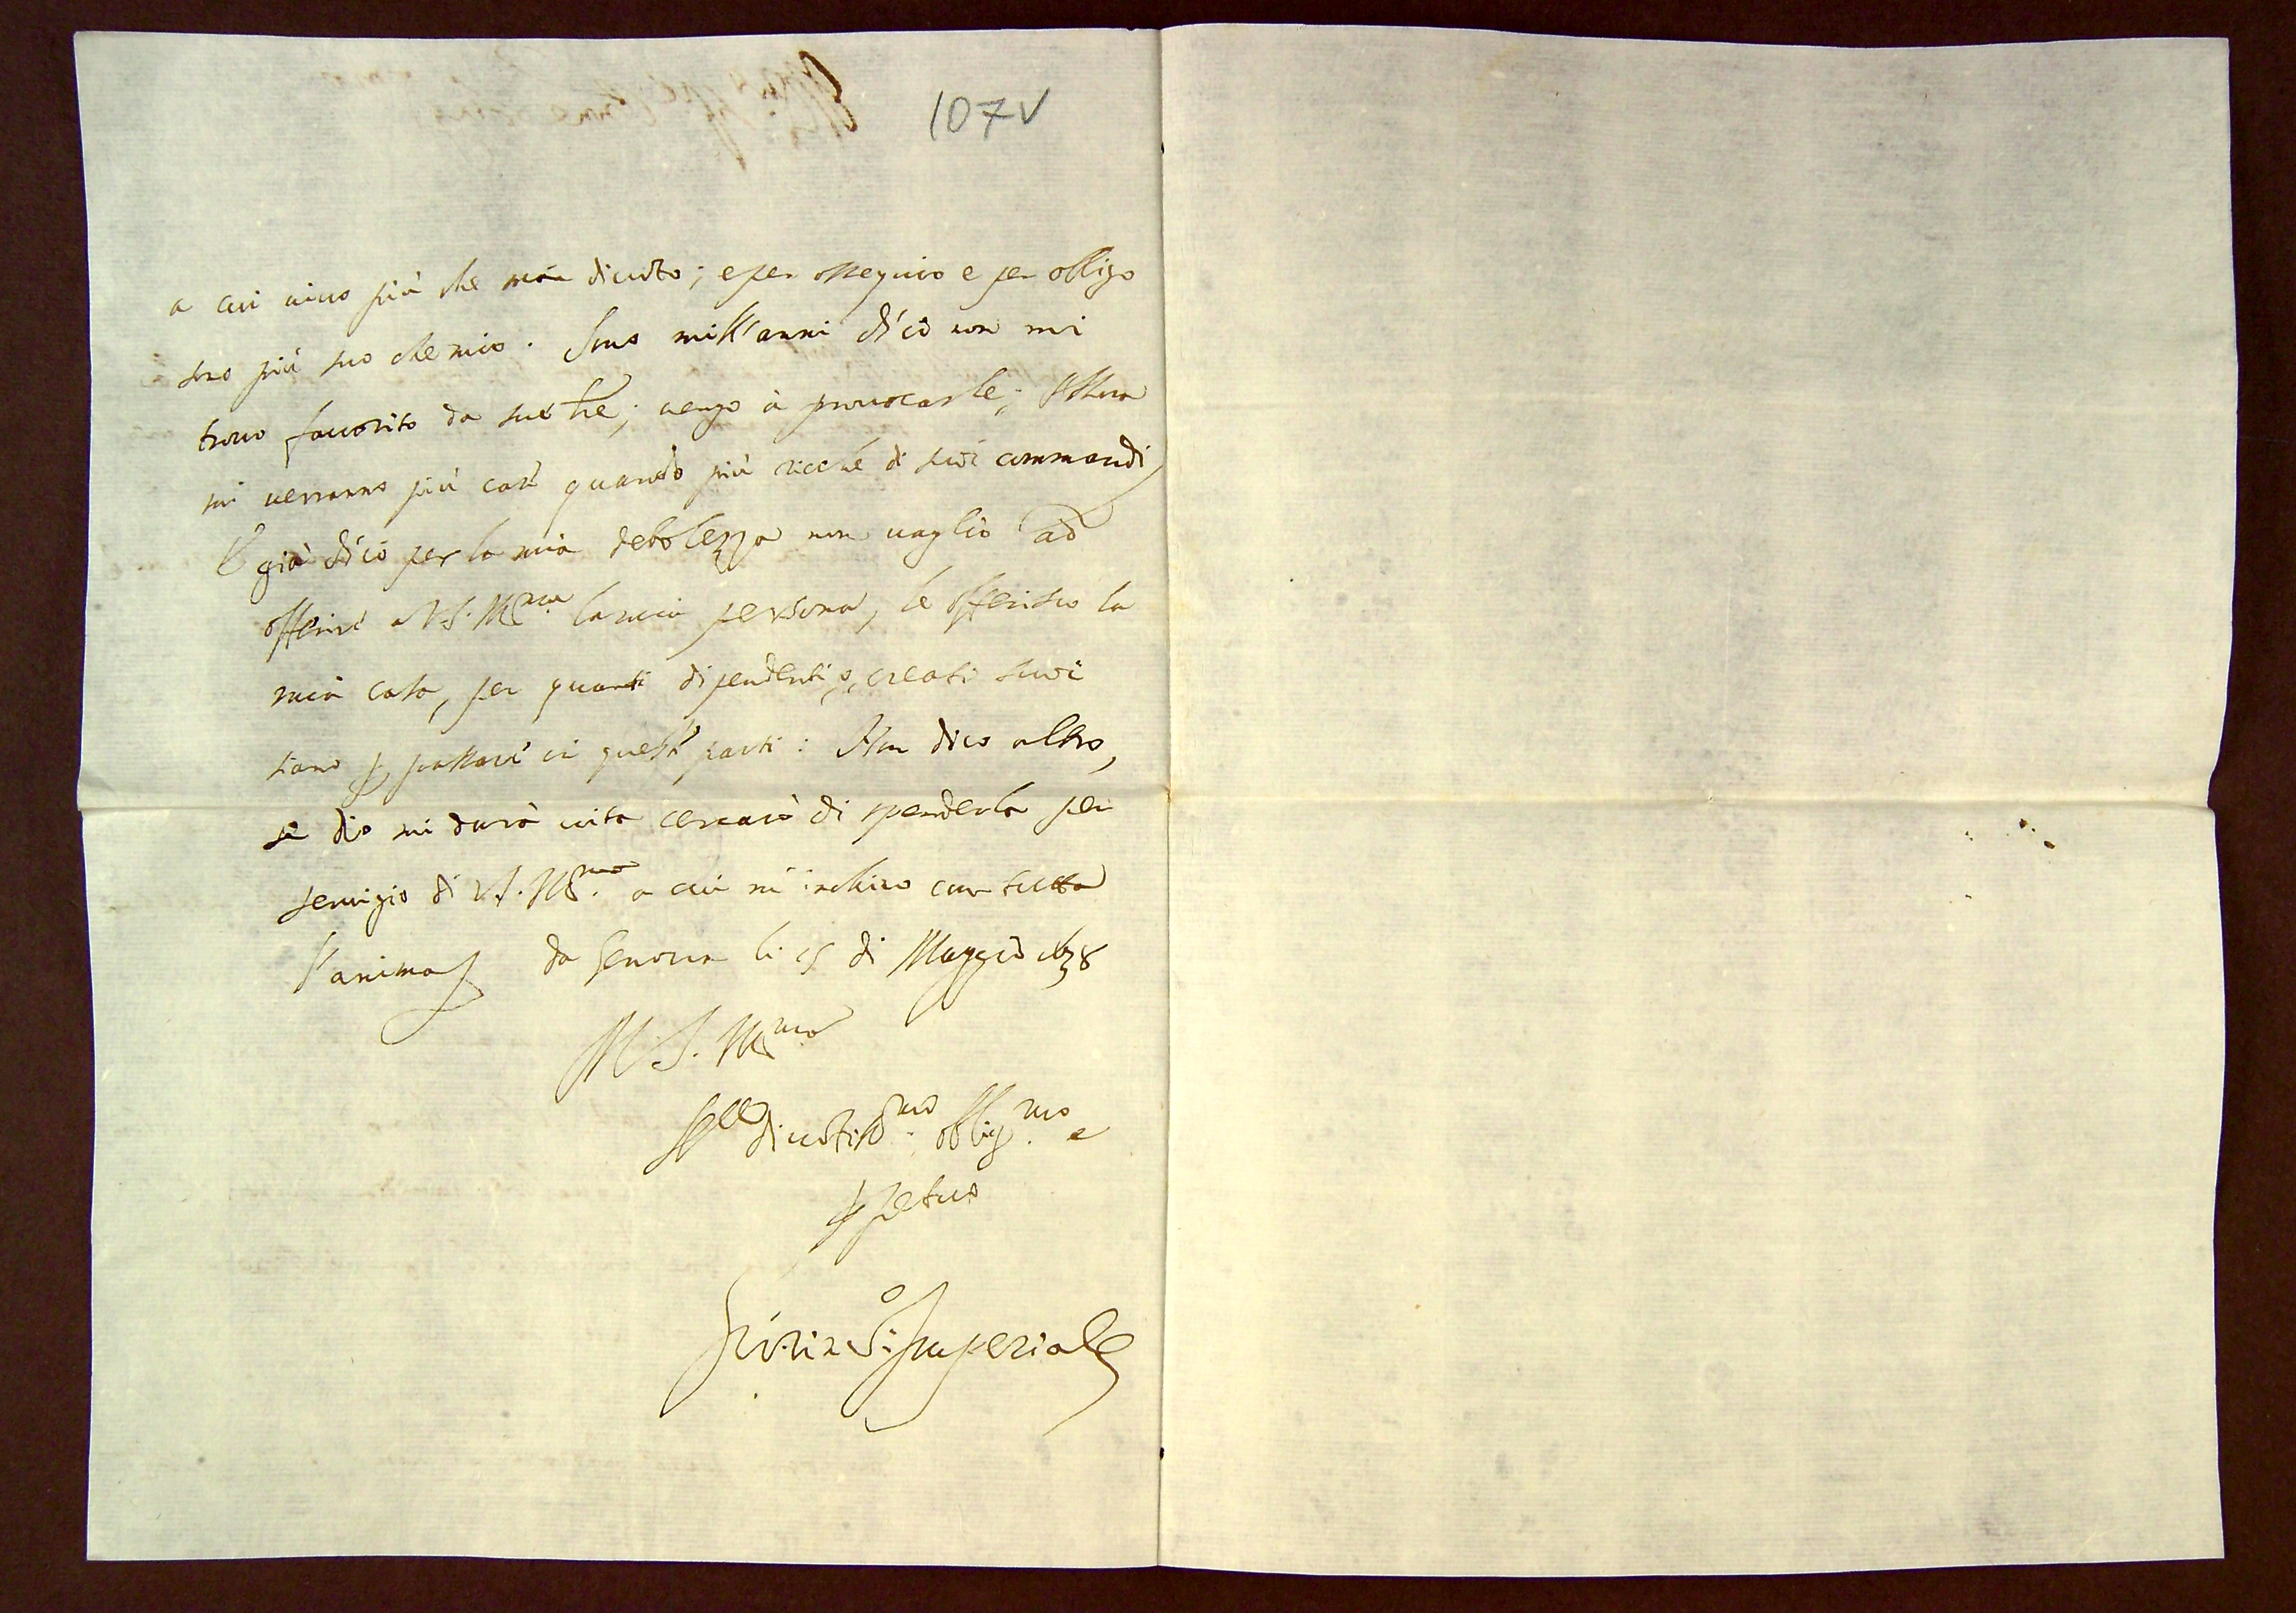 107v
a cui vivo più che mai divoto; e per ossequio e per obligo
sono più suo che mio. Sono mill'anni ch'io non mi
trovo favorito da sue lre; vengo à provocarle;
mi verranno più care quanto più ricche di suoi commandi,
E già ch'io per la mia debolezza non vaglio ad
offerire a V.S. Ill.ma la mia persona, le offerisco la
mia casa, per quanti dipendenti, creati suoi
siano p passare in queste parti: Non dico altro,
se Dio mi darà vita cercarò di spenderla per
servigio di V.S. Ill.ma a cui m'inchino con tutta
l'anima da Genova li 15 di Maggio 1638
V.S. Ill.ma
divotiss.mo oblig.mo e
ppetuo
Gio: Vin.o Imperiale